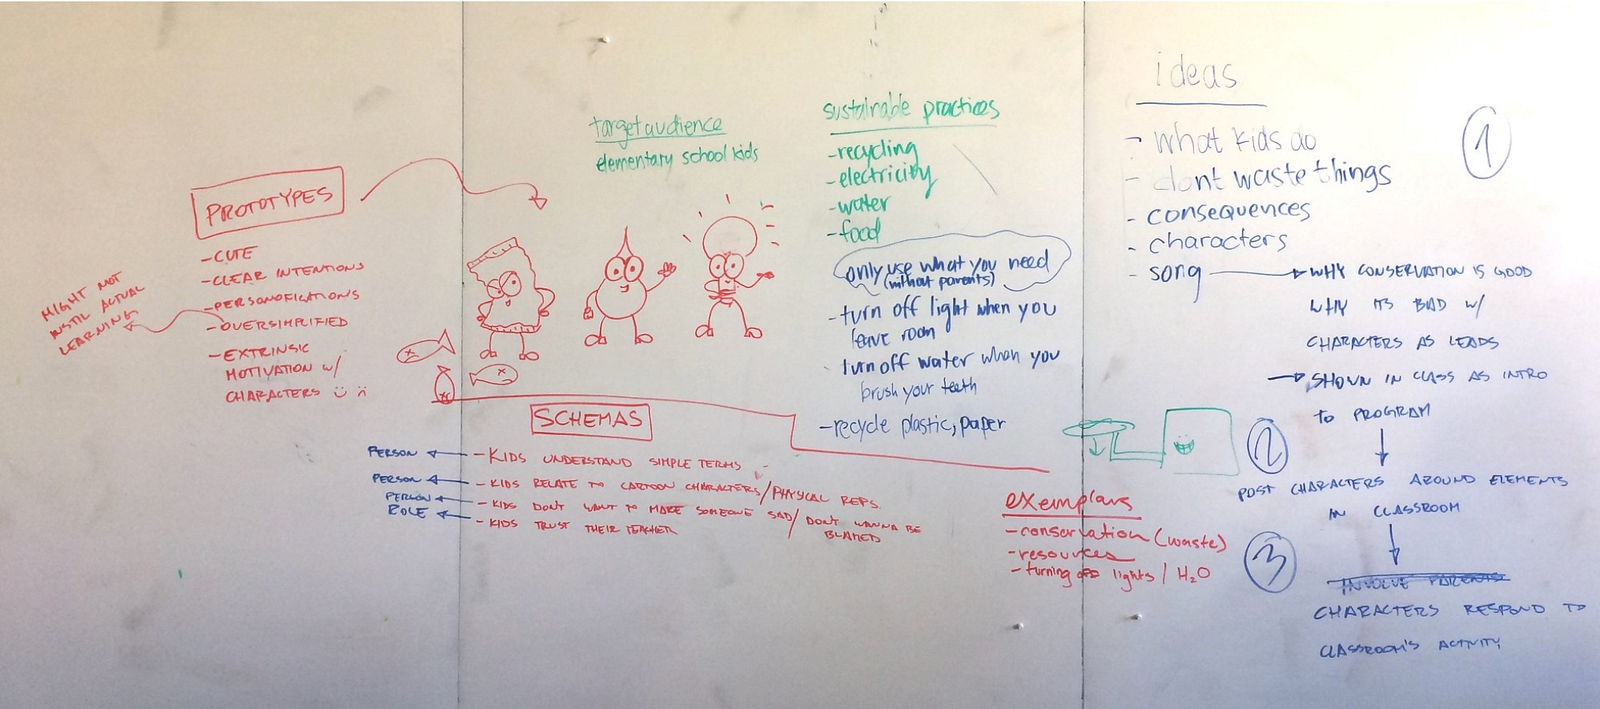 MIGHT NOT
INSTIL ACTUAL
LEARNING
PROTOTYPES
- CUTE
- CLEAR INTENTIONS
- PERSONOFICATIONS
- OVERSIMPLIFIED
- EXTRINSIC
MOTIVATION w/
CHARACTERS
target audience
elementary school kids
sustainable practices
- recycling
- electricity
- water
- food
only use what you need
(without parents)
- turn off light when you
leave room
turn off water when you
brush your teeth
- recycle plastic, paper
SCHEMAS
PERSON
- KIDS UNDERSTAND SIMPLE TERMS
PERSON
- KIDS RELATE TO CARTOON CHARACTERS / PHYSICAL REPS.
PERSON
- KIDS DON'T WANT TO MAKE SOMEONE SAD / DON'T WANNA BE
BLAMED
ROLE
- KIDS TRUST THEIR TEACHER
exemplars
- conservation (waste)
- resources
- turning off lights / H2O
ideas
- what kids do
- dont waste things
- consequences
- characters
- song
1
WHY CONSERVATION IS GOOD
WHY ITS BAD w/
CHARACTERS AS LEADS
SHOWN IN CLASS AS INTRO
TO PROGRAM
2
POST CHARACTERS AROUND ELEMENTS
IN CLASSROOM
3
INVOLVE PARENTS
CHARACTERS RESPOND TO
CLASSROOM'S ACTIVITY